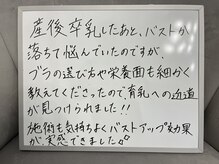 産後卒乳したあと、バストが
落ちて悩んでいたのですが、
ブラの選び方や栄養面も細かく
教えてくださったので育乳への近道
が見つけられました!!
施術も気持ちよくバストアップ効果
が実感できました